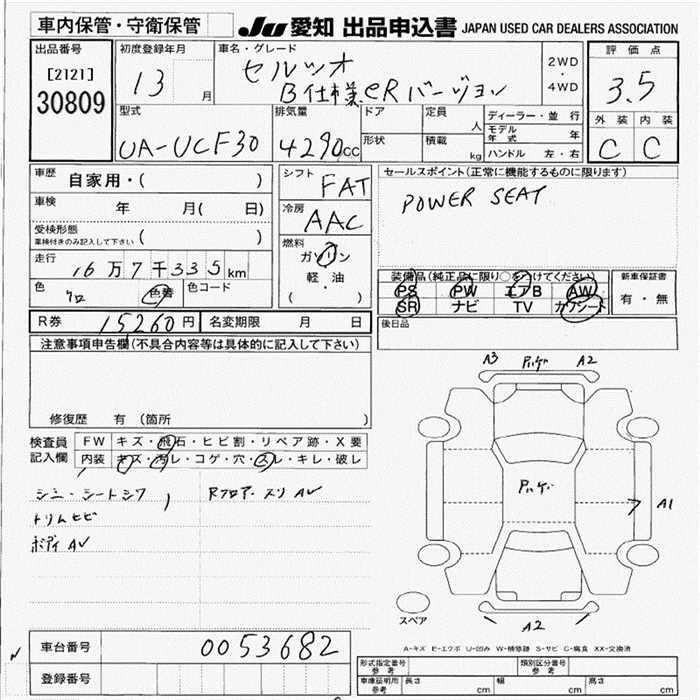 車内保管・守衛保管
JU 愛知 出品申込書 JAPAN USED CAR DEALERS ASSOCIATION
出品番号
[2121]
30809
初度登録年月
13 月
車名・グレード
セルシオ
B仕様eRバージョン
2WD
・
4WD
評価点
3.5
外装 内装
C C
型式
UA-UCF30
排気量
4290cc
ドア
定員
人
形状
積載
kg
ディーラー・並行
モデル年式 年
ハンドル 左・右
車歴
自家用・( )
車検
年 月( 日)
受検形態
車検付きのみ記入して下さい ( )
走行
16万7千335km
色
クロ
色替
色コード
シフト
FAT
冷房
AAC
燃料
ガソリン
軽・油
( )
セールスポイント(正常に機能するものに限ります)
POWER SEAT
装備品(純正品に限り○をつけてください)
PS PW エアB AW
SR ナビ TV カワシート
新車保証書
有・無
後日品
R券 15260円
名変期限 月 日
注意事項申告欄(不具合内容等は具体的に記入して下さい)
修復歴 有 (箇所 )
検査員
記入欄
FW キズ・飛石・ヒビ割・リペア跡・X要
内装 キズ・汚レ・コゲ・穴・スレ・キレ・破レ
シミ・シートシワ
RフロアースリAV
トリムヒビ
ボディAV
A3 A2
A1
A2
スペア
A-キズ E-エクボ U-凹み W-補修跡 S-サビ C-腐食 XX-交換済
車台番号 0053682
登録番号
形式指定番号
参考
類別区分番号
参考
車庫証明用
参考
長さ cm 幅 cm 高さ cm